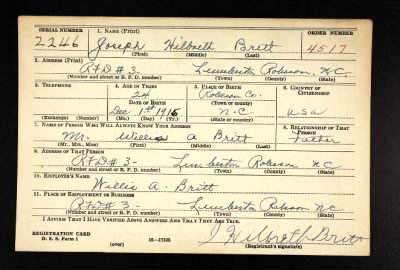 SERIAL NUMBER 1. NAME (Print) ORDER NUMBER
2246 Joseph Hilbreth Britt 4517
(First) (Middle) (Last)
2. ADDRESS (Print)
RFD #3 Lumberton Robeson, N.C.
(Number and street or R. F. D. number) (Town) (County) (State)
3. TELEPHONE 4. AGE IN YEARS 5. PLACE OF BIRTH 6. COUNTRY OF CITIZENSHIP
24 Robeson Co.
DATE OF BIRTH (Town or county)
Dec. 1st 1915 N-C USA
(Exchange) (Number) (Mo.) (Day) (Yr.) (State or country)
7. NAME OF PERSON WHO WILL ALWAYS KNOW YOUR ADDRESS 8. RELATIONSHIP OF THAT PERSON
Mr. Willis A Britt Father
(Mr., Mrs., Miss) (First) (Middle) (Last)
9. ADDRESS OF THAT PERSON
RFD #3- Lumberton Robeson NC
(Number and street or R. F. D. number) (Town) (County) (State)
10. EMPLOYER'S NAME
Willis A. Britt
11. PLACE OF EMPLOYMENT OR BUSINESS
RFD #3- Lumberton Robeson NC
(Number and street or R. F. D. number) (Town) (County) (State)
I AFFIRM THAT I HAVE VERIFIED ABOVE ANSWERS AND THAT THEY ARE TRUE.
REGISTRATION CARD J Hilbreth Britt
D. S. S. Form 1 (over) 16-17105 (Registrant's signature)